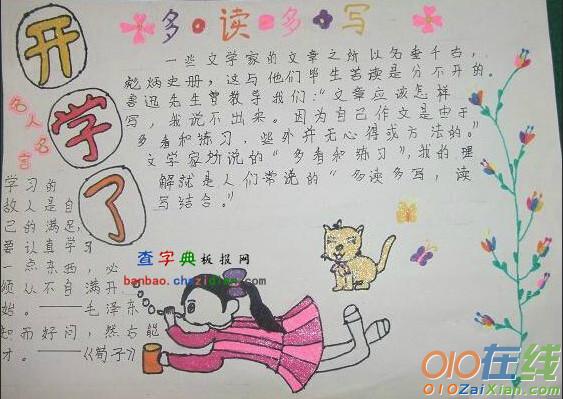 开学了
多·读·多·写
一些文学家的文章之所以名垂千古，
彪炳史册，这与他们毕生苦读是分不开的。
鲁迅先生曾教导我们：“文章应该怎样
写，我说不出来。因为自己作文是由于
多看和练习，些外并无心得或方法的。”
文学家所说的“多看和练习”，我的理
解就是人们常说的“多读多写，读
写结合。”
名人名言
学习的
敌人是自
己的满足，
要认真学习
一点东西，必
须从不自满开
始。——毛泽东
知而好问，然后能
才。——《荀子》
查字典板报网
banbao.chazidian.com
010在线
010ZaiXian.com